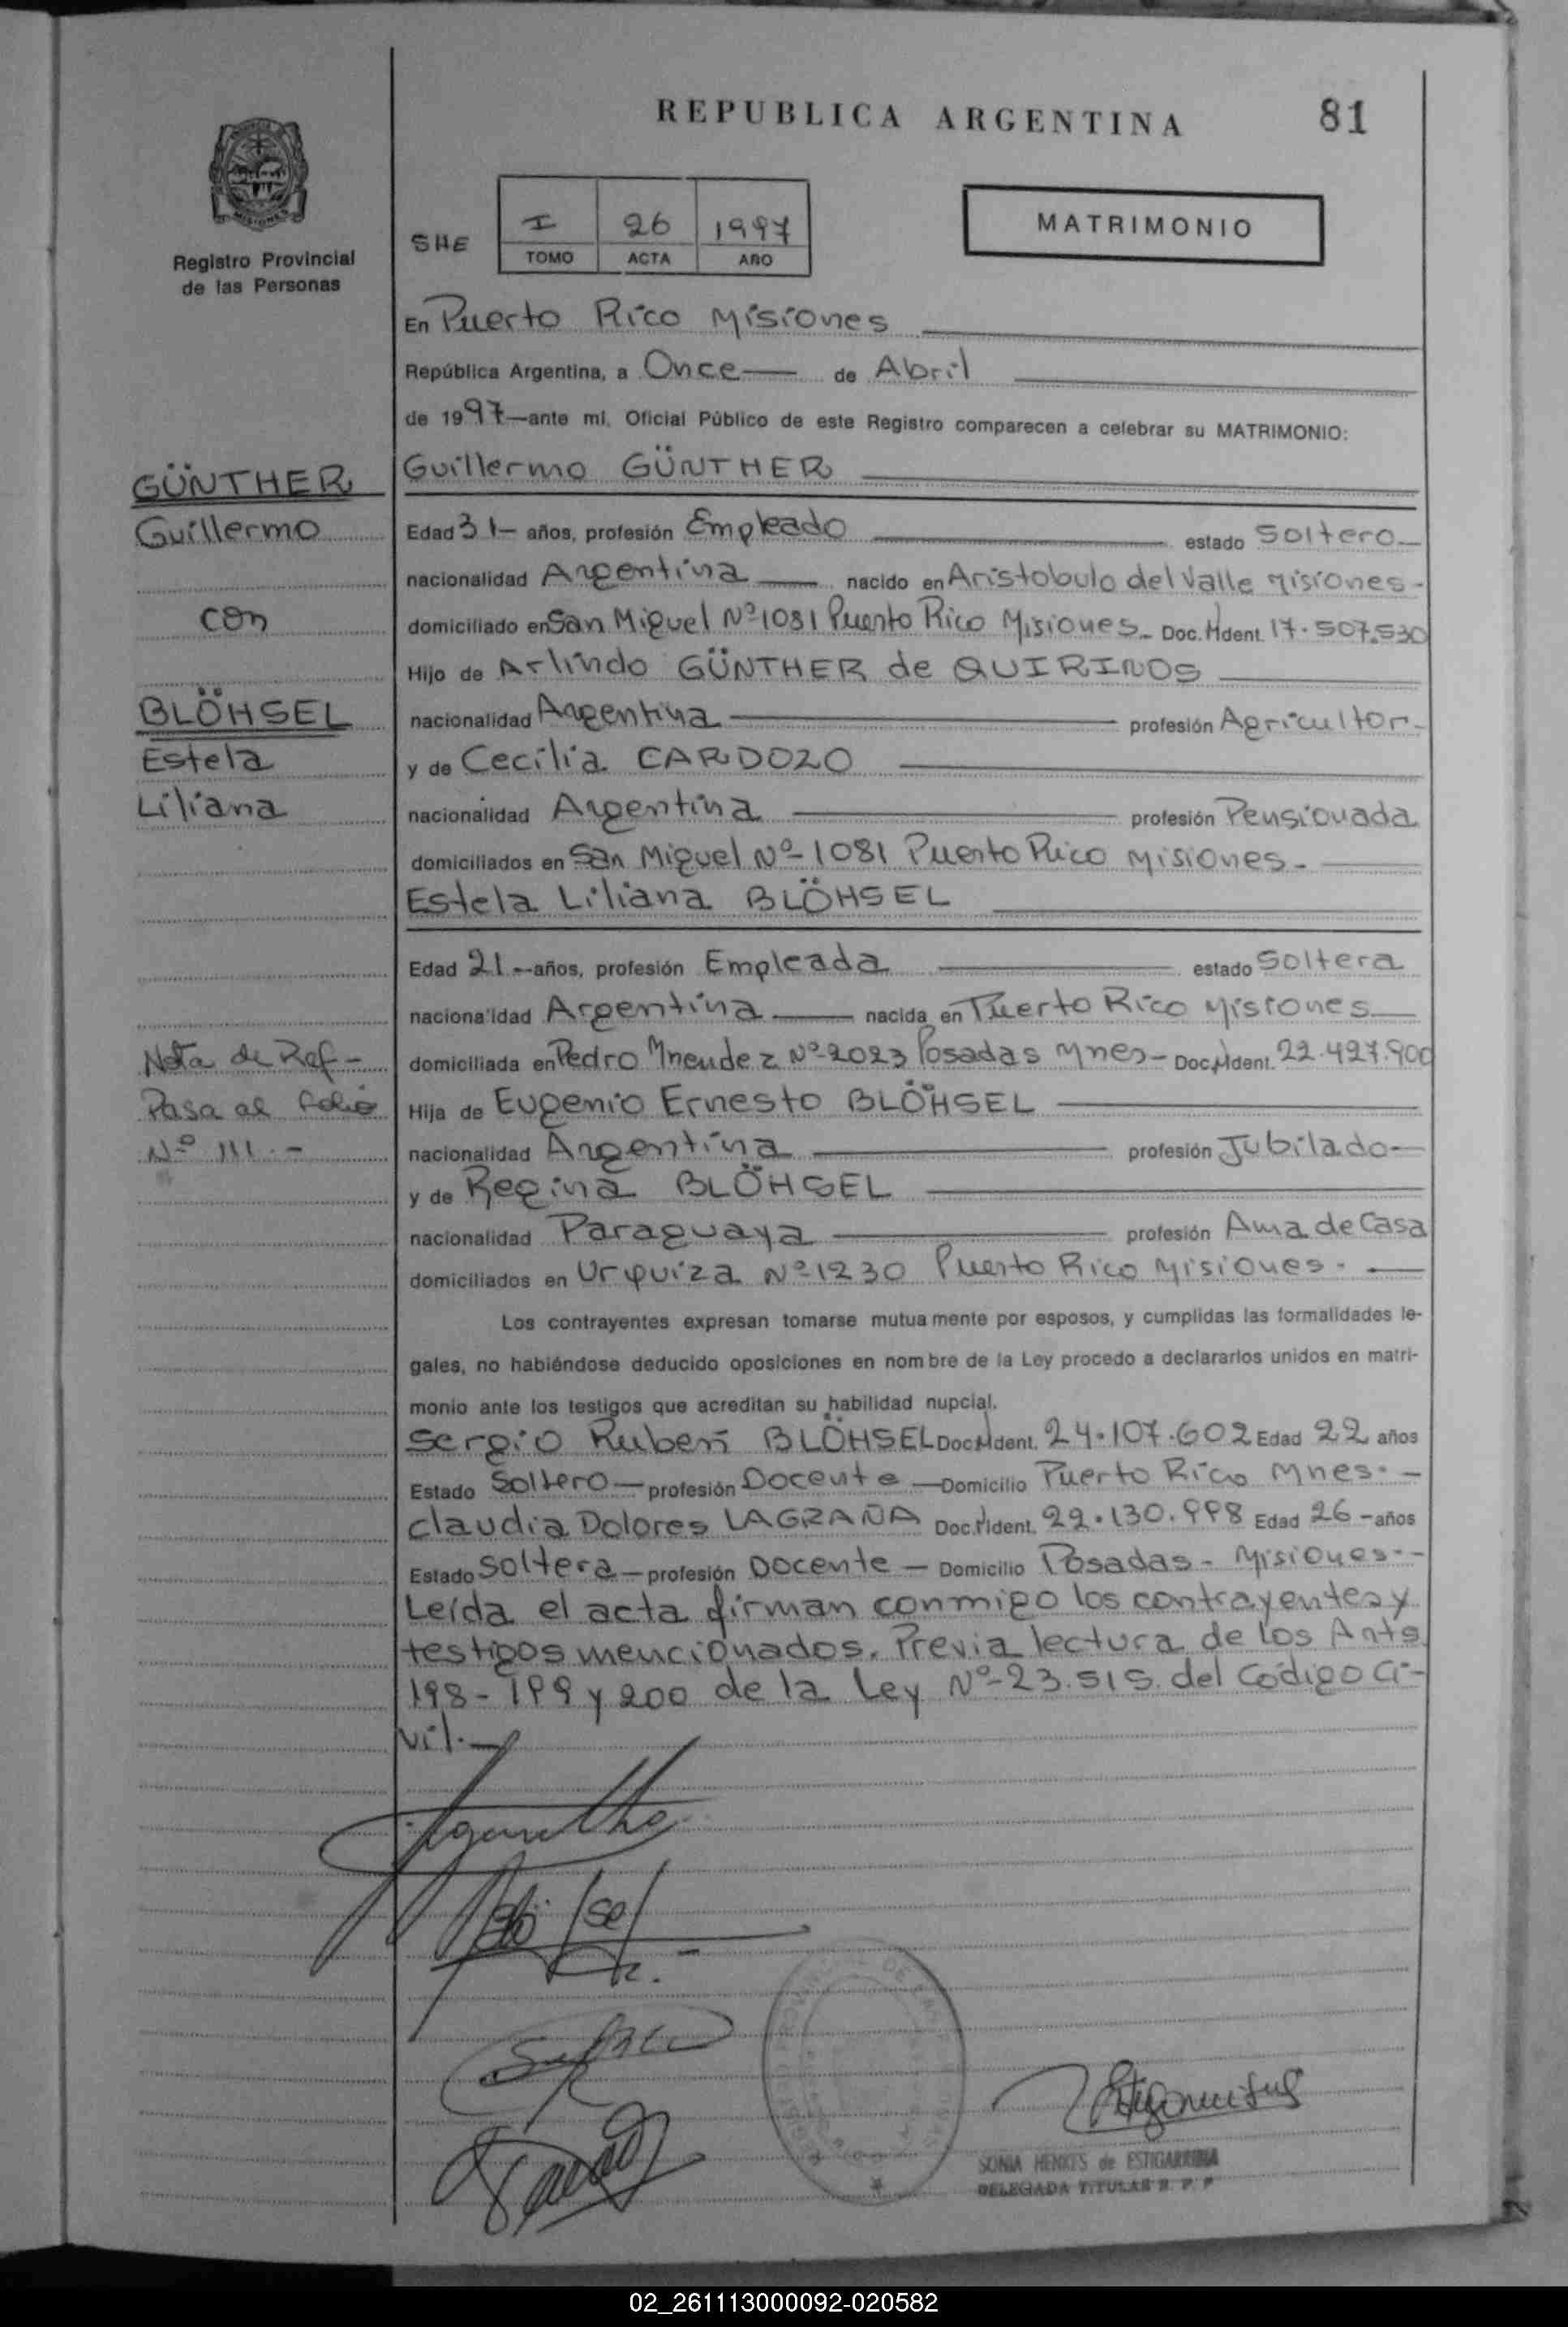 REPUBLICA ARGENTINA
81
Registro Provincial
de las Personas
SHE
I 26 1997
TOMO ACTA AÑO
MATRIMONIO
En Puerto Rico Misiones
República Argentina, a Once de Abril
de 1997 ante mi, Oficial Público de este Registro comparecen a celebrar su MATRIMONIO:
Guillermo GÜNTHER
GÜNTHER
Guillermo
con
BLÖHSEL
Estela
Liliana
Edad 31 años, profesión Empleado estado Soltero
nacionalidad Argentina nacido en Aristobulo del Valle Misiones
domiciliado en San Miguel Nº 1081 Puerto Rico Misiones Doc. Ident. 17.507.530
Hijo de Arlindo GÜNTHER de QUIRINOS
nacionalidad Argentina profesión Agricultor
y de Cecilia CARDOZO
nacionalidad Argentina profesión Pensionada
domiciliados en San Miguel Nº 1081 Puerto Rico Misiones
Estela Liliana BLÖHSEL
Edad 21 años, profesión Empleada estado Soltera
nacionalidad Argentina nacida en Puerto Rico Misiones
domiciliada en Pedro Mnendez Nº 2023 Posadas Mnes Doc. Ident. 22.427.900
Hija de Eugenio Ernesto BLÖHSEL
nacionalidad Argentina profesión Jubilado
y de Regina BLÖHSEL
nacionalidad Paraguaya profesión Ama de Casa
domiciliados en Urquiza Nº 1230 Puerto Rico Misiones.
Nota de Ref-
Pasa al folio
Nº 111.-
Los contrayentes expresan tomarse mutuamente por esposos, y cumplidas las formalidades le-
gales, no habiéndose deducido oposiciones en nombre de la Ley procedo a declararlos unidos en matri-
monio ante los testigos que acreditan su habilidad nupcial.
Sergio Ruben BLÖHSEL Doc. Ident. 24.107.602 Edad 22 años
Estado Soltero profesión Docente Domicilio Puerto Rico Mnes.
Claudia Dolores LAGRAÑA Doc. Ident. 22.130.998 Edad 26 años
Estado Soltera profesión Docente Domicilio Posadas - Misiones
Leída el acta firman conmigo los contrayentes y
testigos mencionados. Previa lectura de los Arts
198-199 y 200 de la Ley Nº 23.515. del Código Ci-
vil.
SONIA HENKES de ESTIGARRIBIA
DELEGADA TITULAR R. P. P
02_261113000092-020582